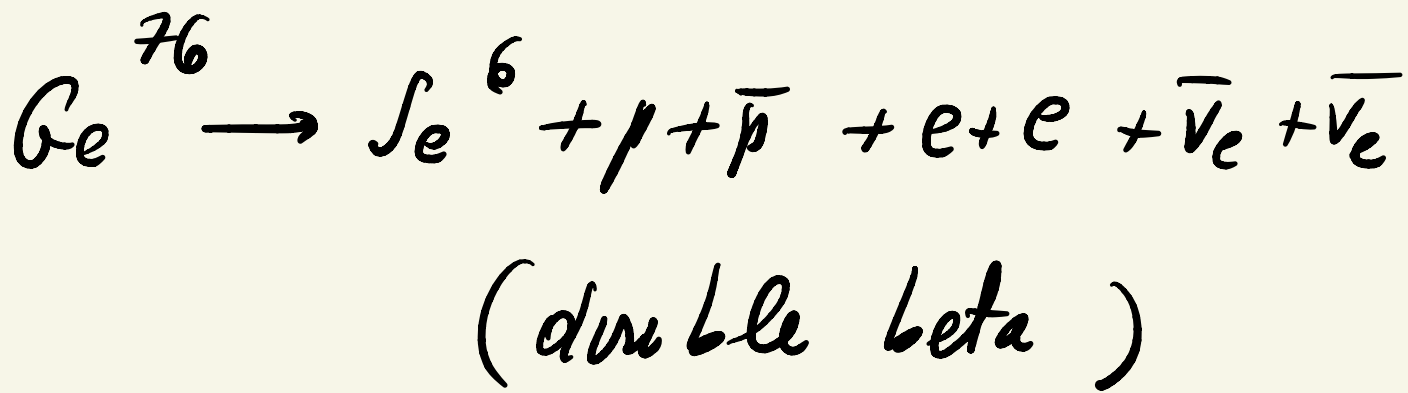 Ge⁷⁶ → Se⁶ + p + p̅ + e + e + ν̅ₑ + ν̅ₑ
(double beta)